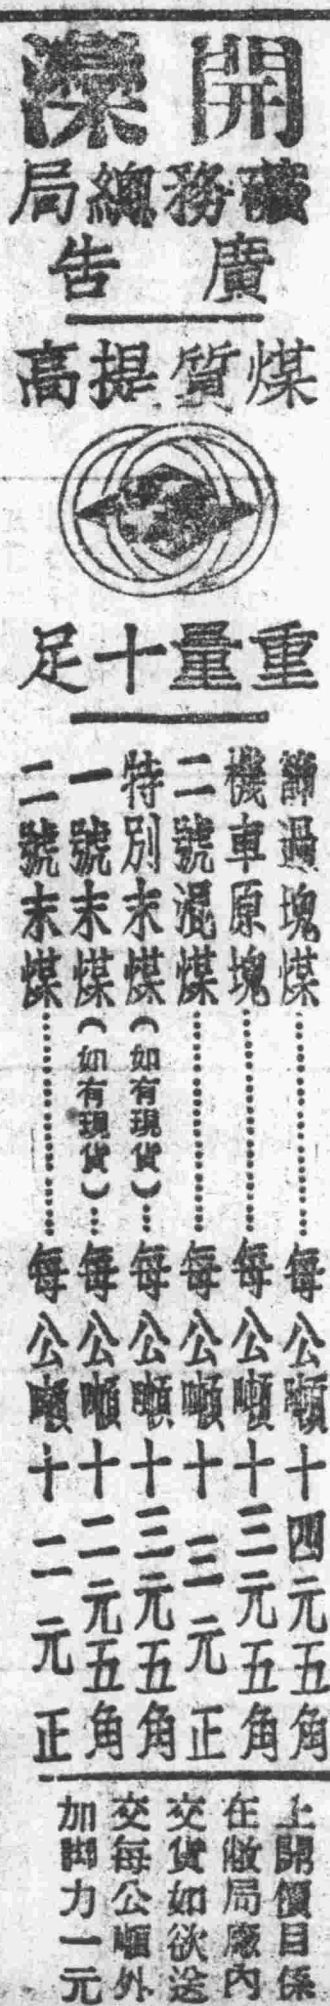 開灤
礦務總局
廣告
煤質提高
重量十足
篩過塊煤………每公噸十四元五角
機車原塊………每公噸十三元五角
二號混煤………每公噸十三元正
特別末煤(如有現貨)…每公噸十三元五角
一號末煤(如有現貨)…每公噸十二元五角
二號末煤………每公噸十二元正
上開價目係
在敝局廠內
交貨如欲送
交每公噸外
加脚力一元